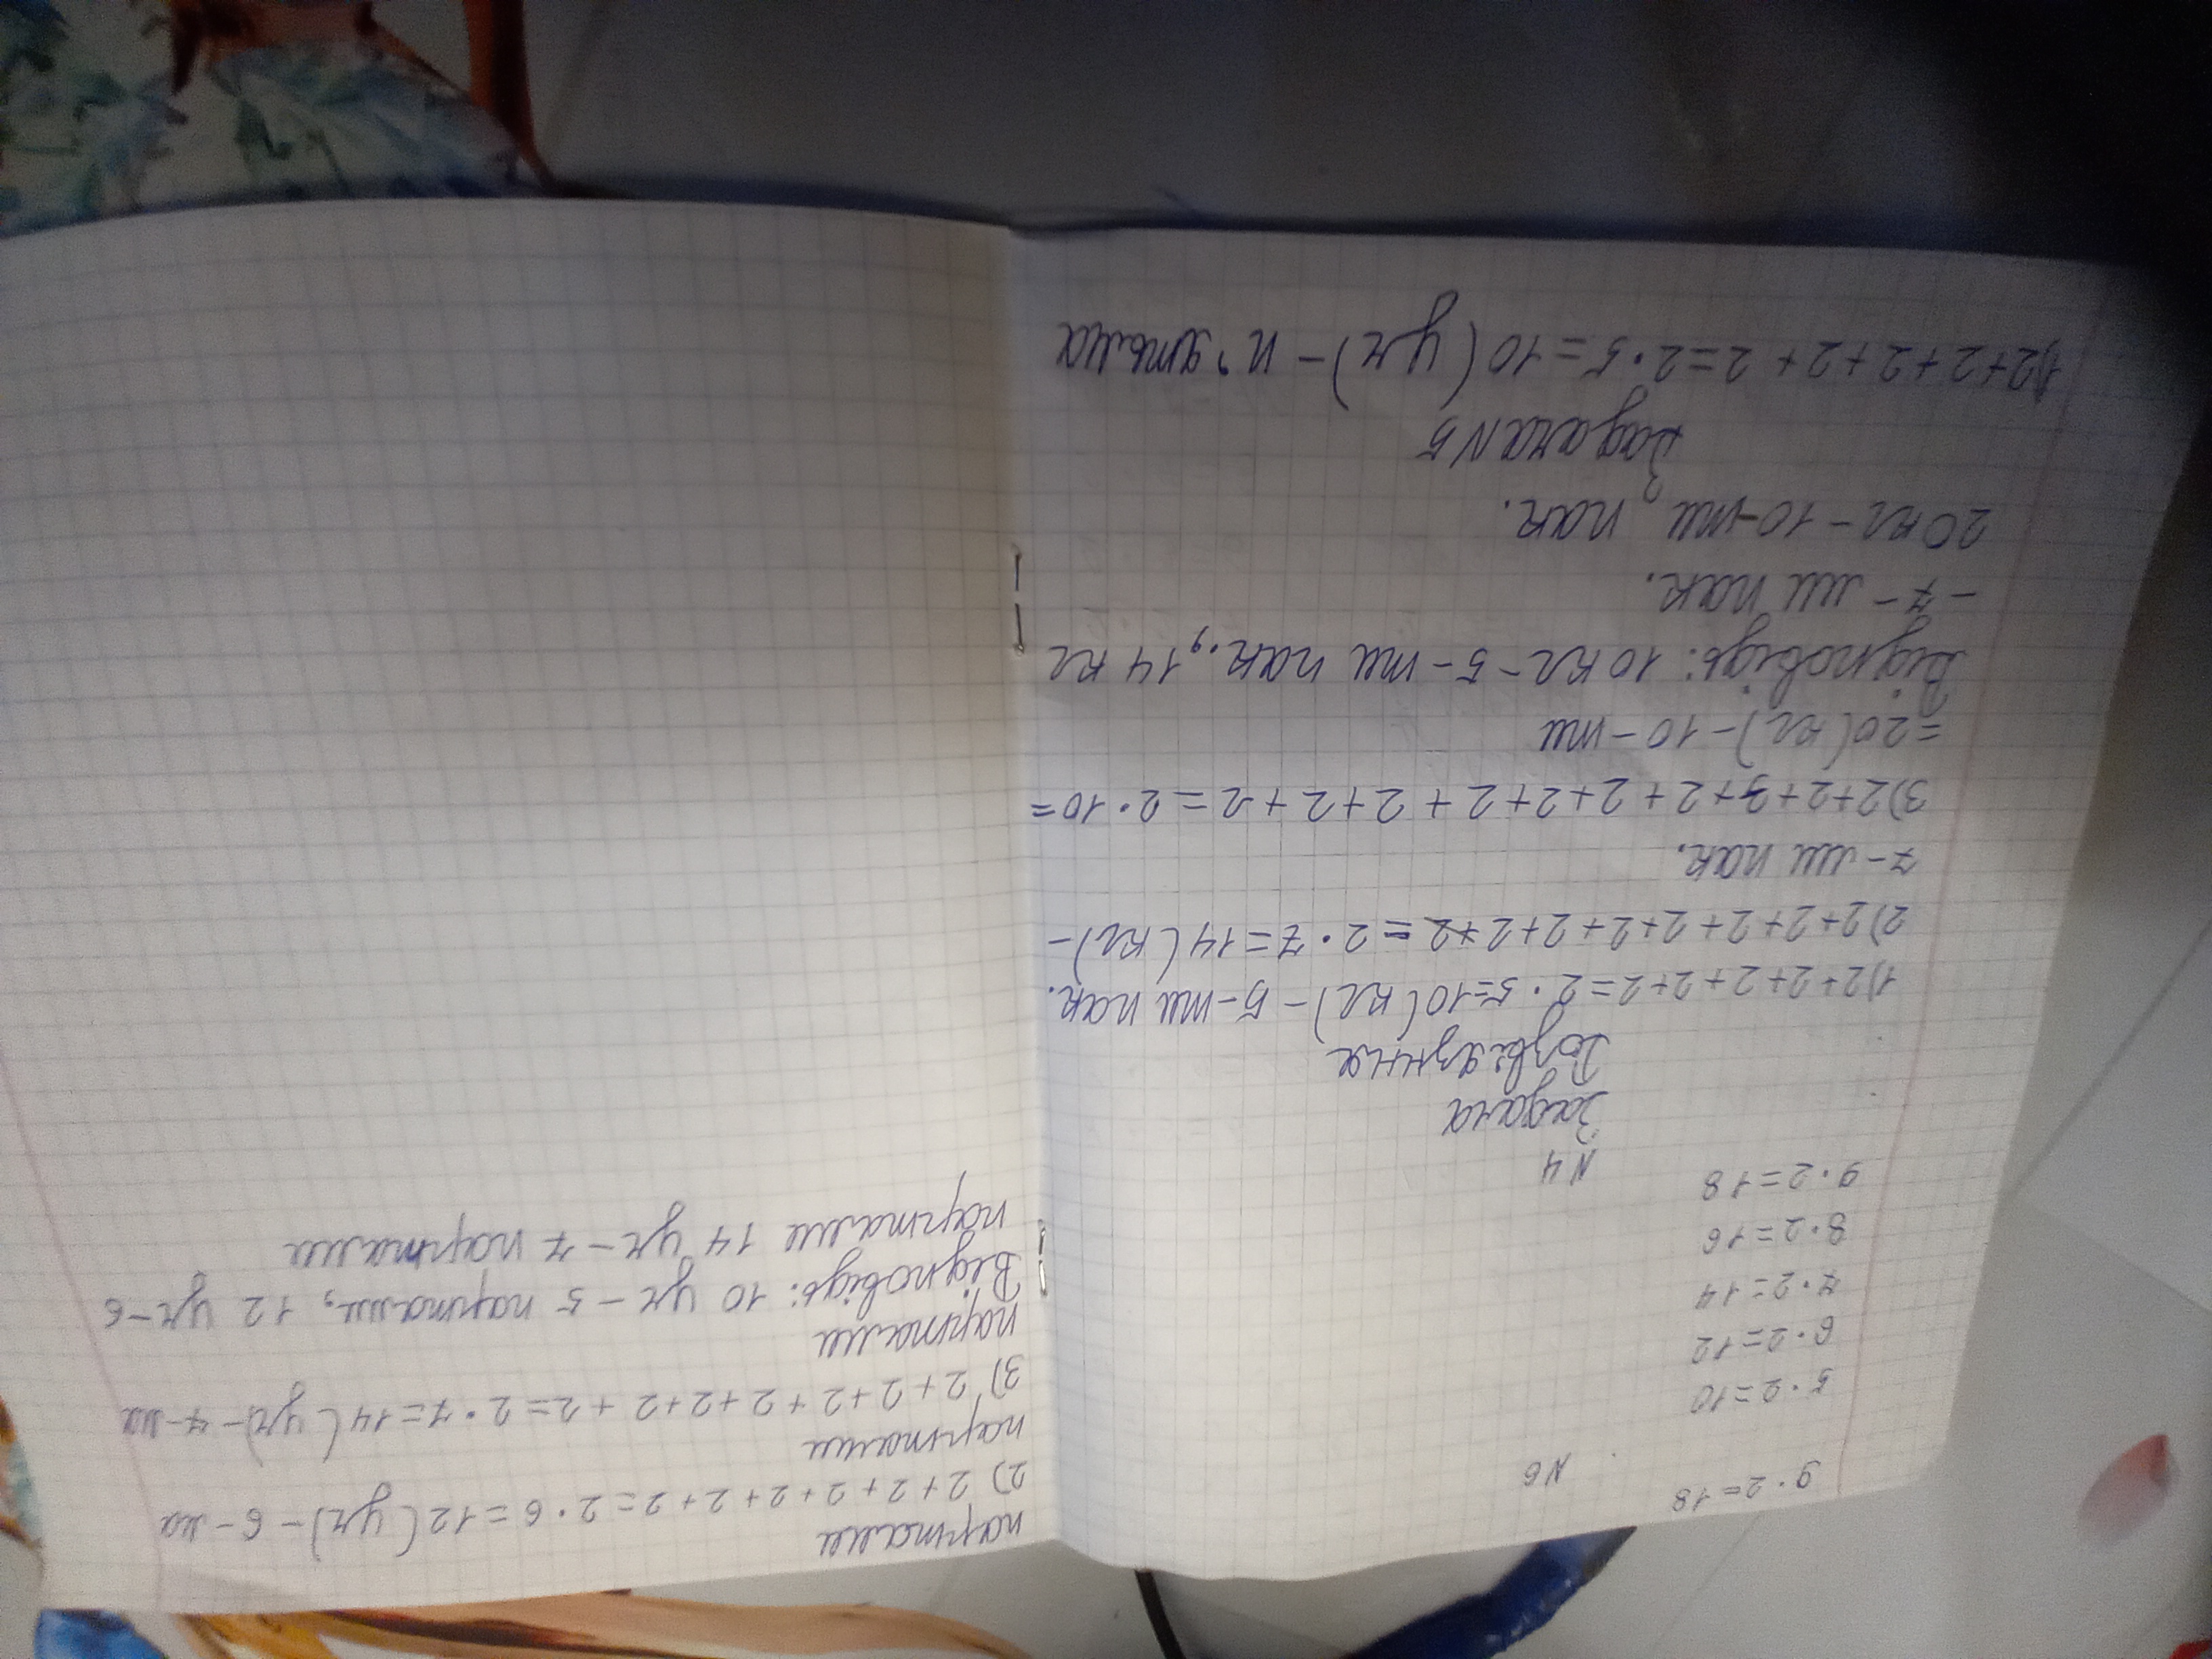 9·2=18
N6
5·2=10
6·2=12
7·2=14
8·2=16
9·2=18
N4
Задача
Розвіязння
1)2+2+2+2+2=2·5=10(кг)-5-ти пак.
2)2+2+2+2+2+2+2+2=2·7=14(кг)-
7-ми пак.
3)2+2+2+2+2+2+2+2+2+2=2·10=
=20(кг)-10-ти
Відповідь: 10кг-5-ти пак., 14кг
-7-ми пак.
20кг-10-ти, пак.
Задача N5
1)2+2+2+2+2=2·5=10(уч)-п'ятьма
партами
2) 2+2+2+2+2+2=2·6=12(уч)-6-ма
партами
3) 2+2+2+2+2+2+2=2·7=14(уч)-7-ма
партами
Відповідь: 10 уч-5 партами, 12 уч-6
партами 14 уч-7 партами